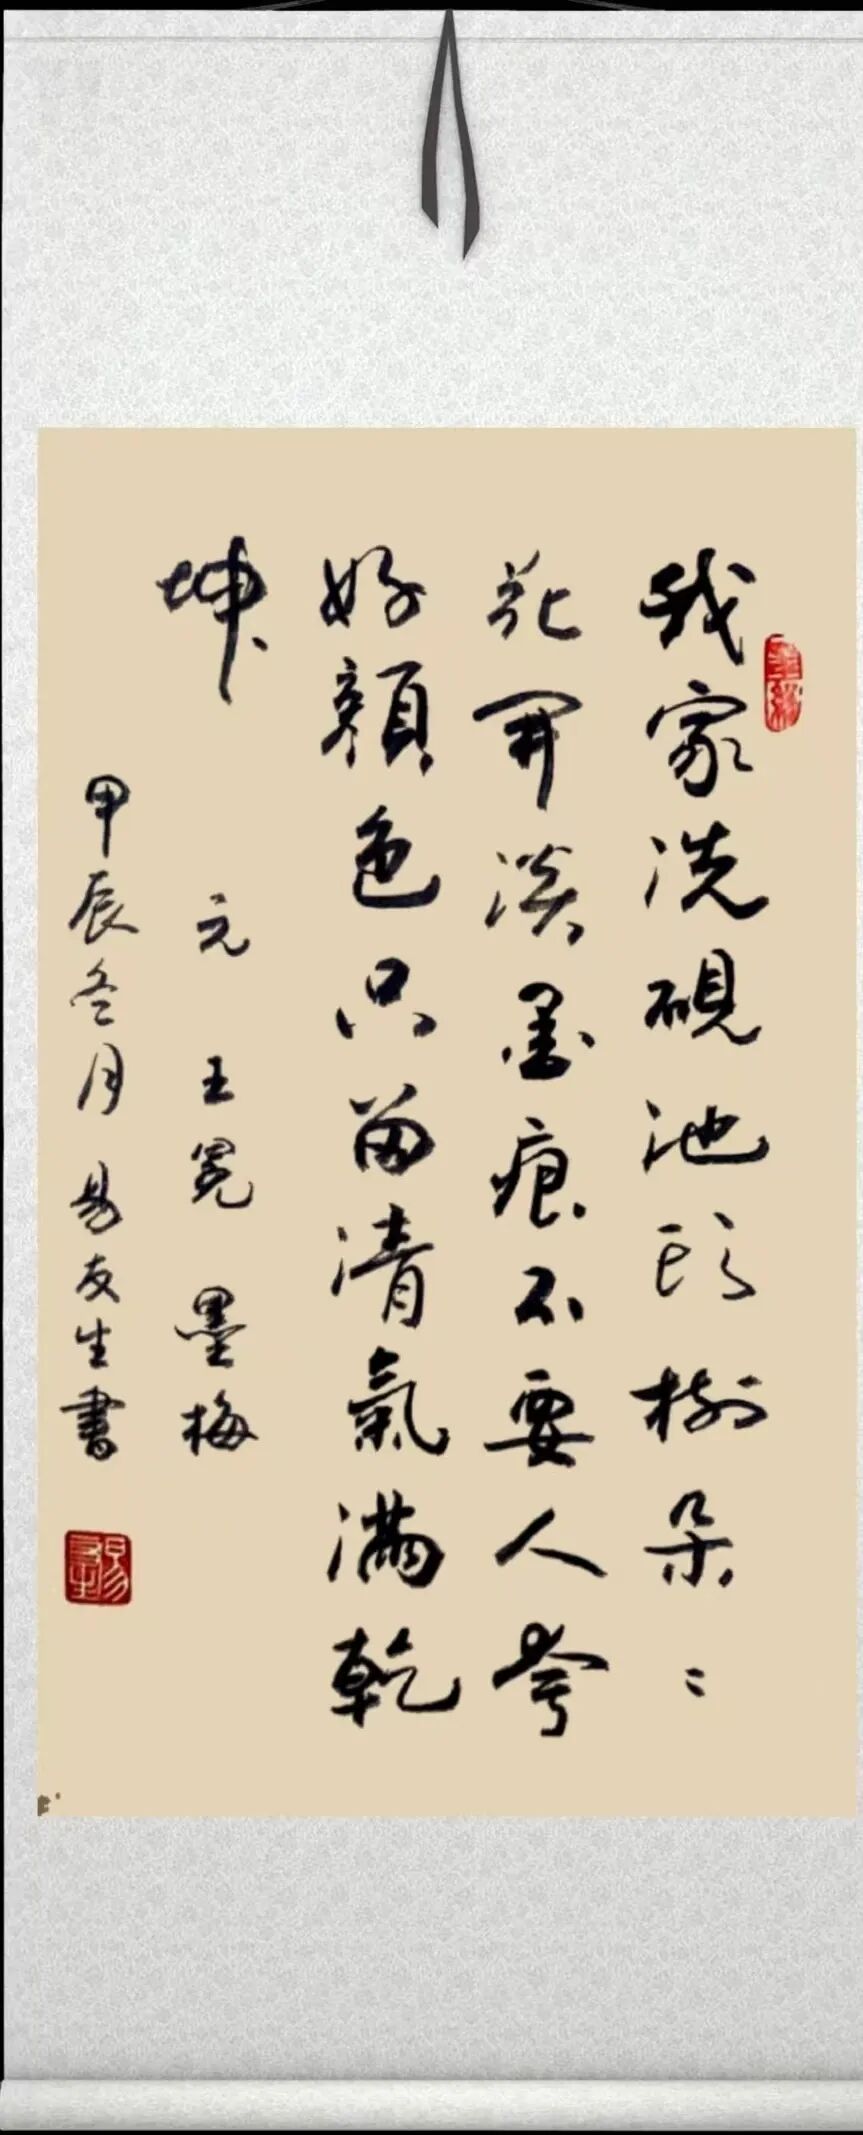 我家洗硯池头樹朵〻
花開淡墨痕不要人夸
好顏色只留清氣滿乾
坤
元 王冕 墨梅
甲辰冬月 易友生書